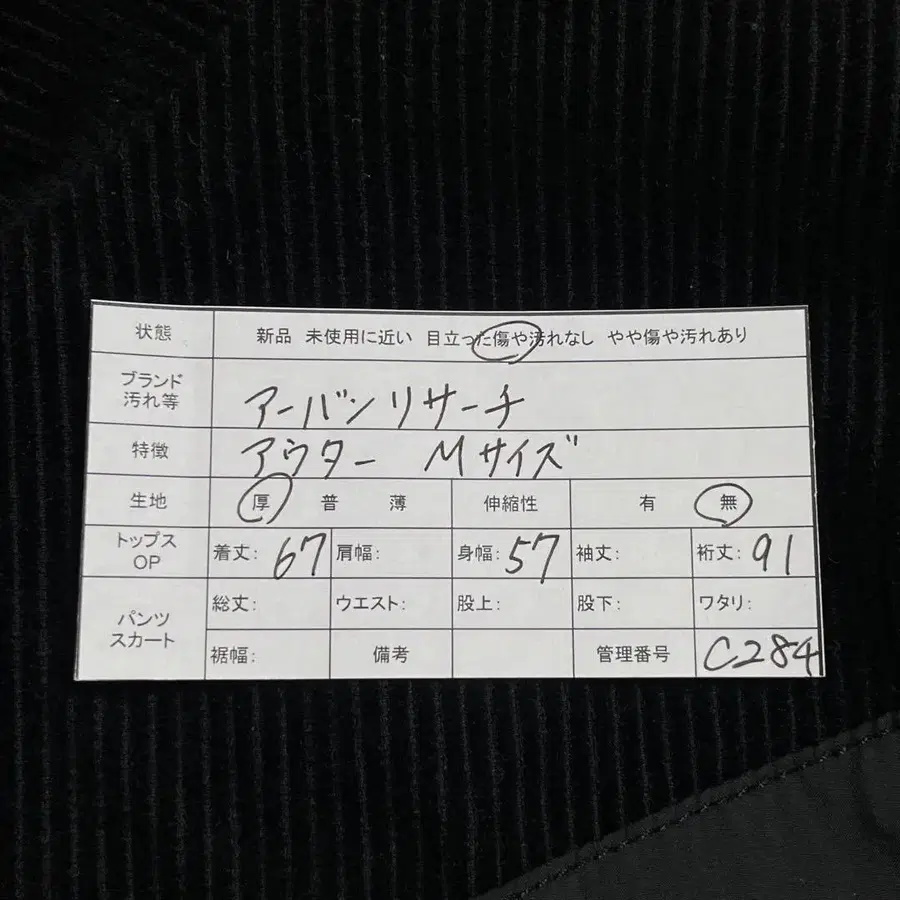 状態 新品 未使用に近い 目立った傷や汚れなし やや傷や汚れあり
ブランド
汚れ等 アーバンリサーチ
特徴 アウター Mサイズ
生地 厚 普 薄 伸縮性 有 無
トップス
OP 着丈: 67 肩幅: 身幅: 57 袖丈: 裄丈: 91
パンツ
スカート 総丈: ウエスト: 股上: 股下: ワタリ:
裾幅: 備考 管理番号 C284